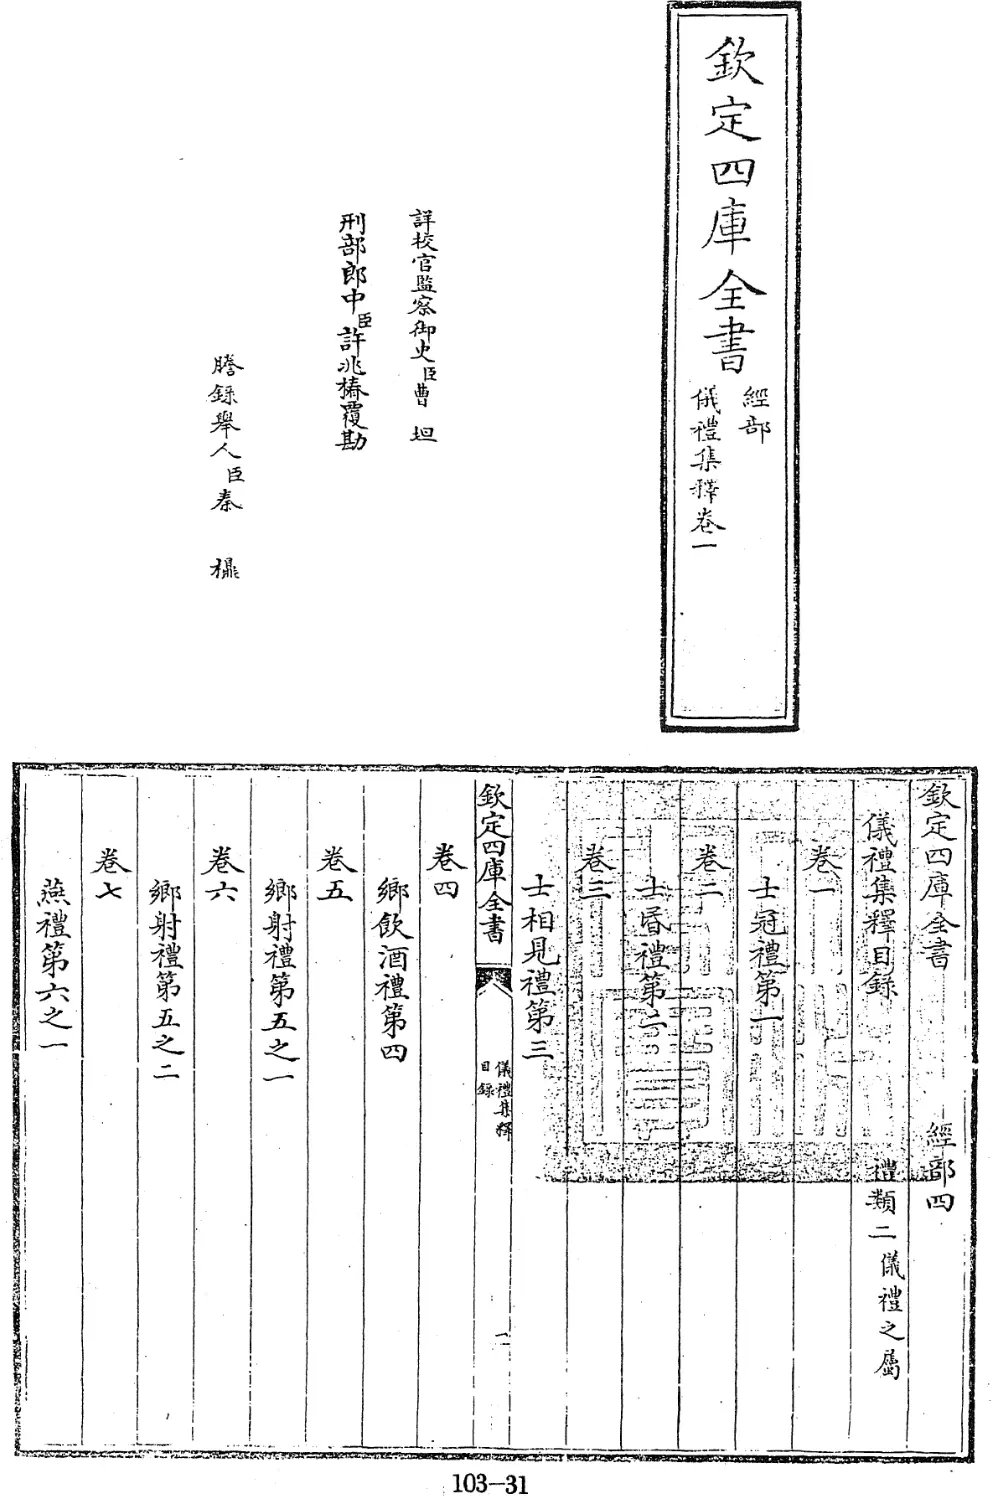 欽定四庫全書
經部
儀禮集釋卷一
詳校官監察御史臣曹坦
刑部郎中臣許兆椿覆勘
謄錄舉人臣秦
欽定四庫全書
經部四
儀禮集釋目錄
禮類二儀禮之屬
卷一
士冠禮第一
卷二
士昏禮第二
卷三
士相見禮第三
欽定四庫全書
儀禮集釋
目錄
一
卷四
鄉飲酒禮第四
卷五
鄉射禮第五之一
卷六
鄉射禮第五之二
卷七
燕禮第六之一
103-31